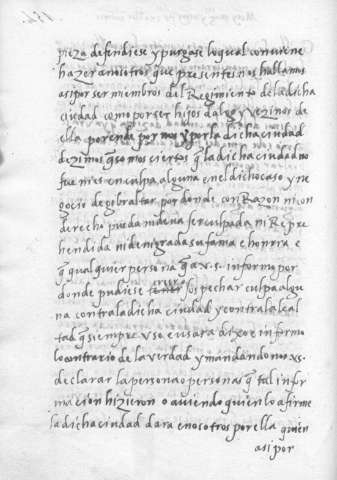 154
pieza defendiese y purgase lo qual conviene
hazer a nosotros que presentes nos hallamos
asi por ser miembros del Regimiento de la dicha
ciudad como por ser hijos dalgo y vezinos de
ella por ende por nos y por la dicha ciudad
dezimos q̃ somos ciertos q̃ la dicha ciudad no
fue ni es en culpa alguna en el dicho caso y ne
gocio de gibraltar por donde con Razon ni con
derecho pueda ni deua ser culpada ni Repre
hendida ni denigrada su fama e honrra e
q̃ qualquier persona q̃ a v. s. informo por
donde pudiese sospechar culpa algu
na contra la dicha ciudad y contra la leal
tad q̃ siempre vso e vsara dixo e informo
lo contrario de la verdad y mandandonos v. s.
declarar la persona o personas q̃ tal infor
macion hizieron o auiendo quien lo afirme
la dicha ciudad dara e nosotros por ella quien
asi por